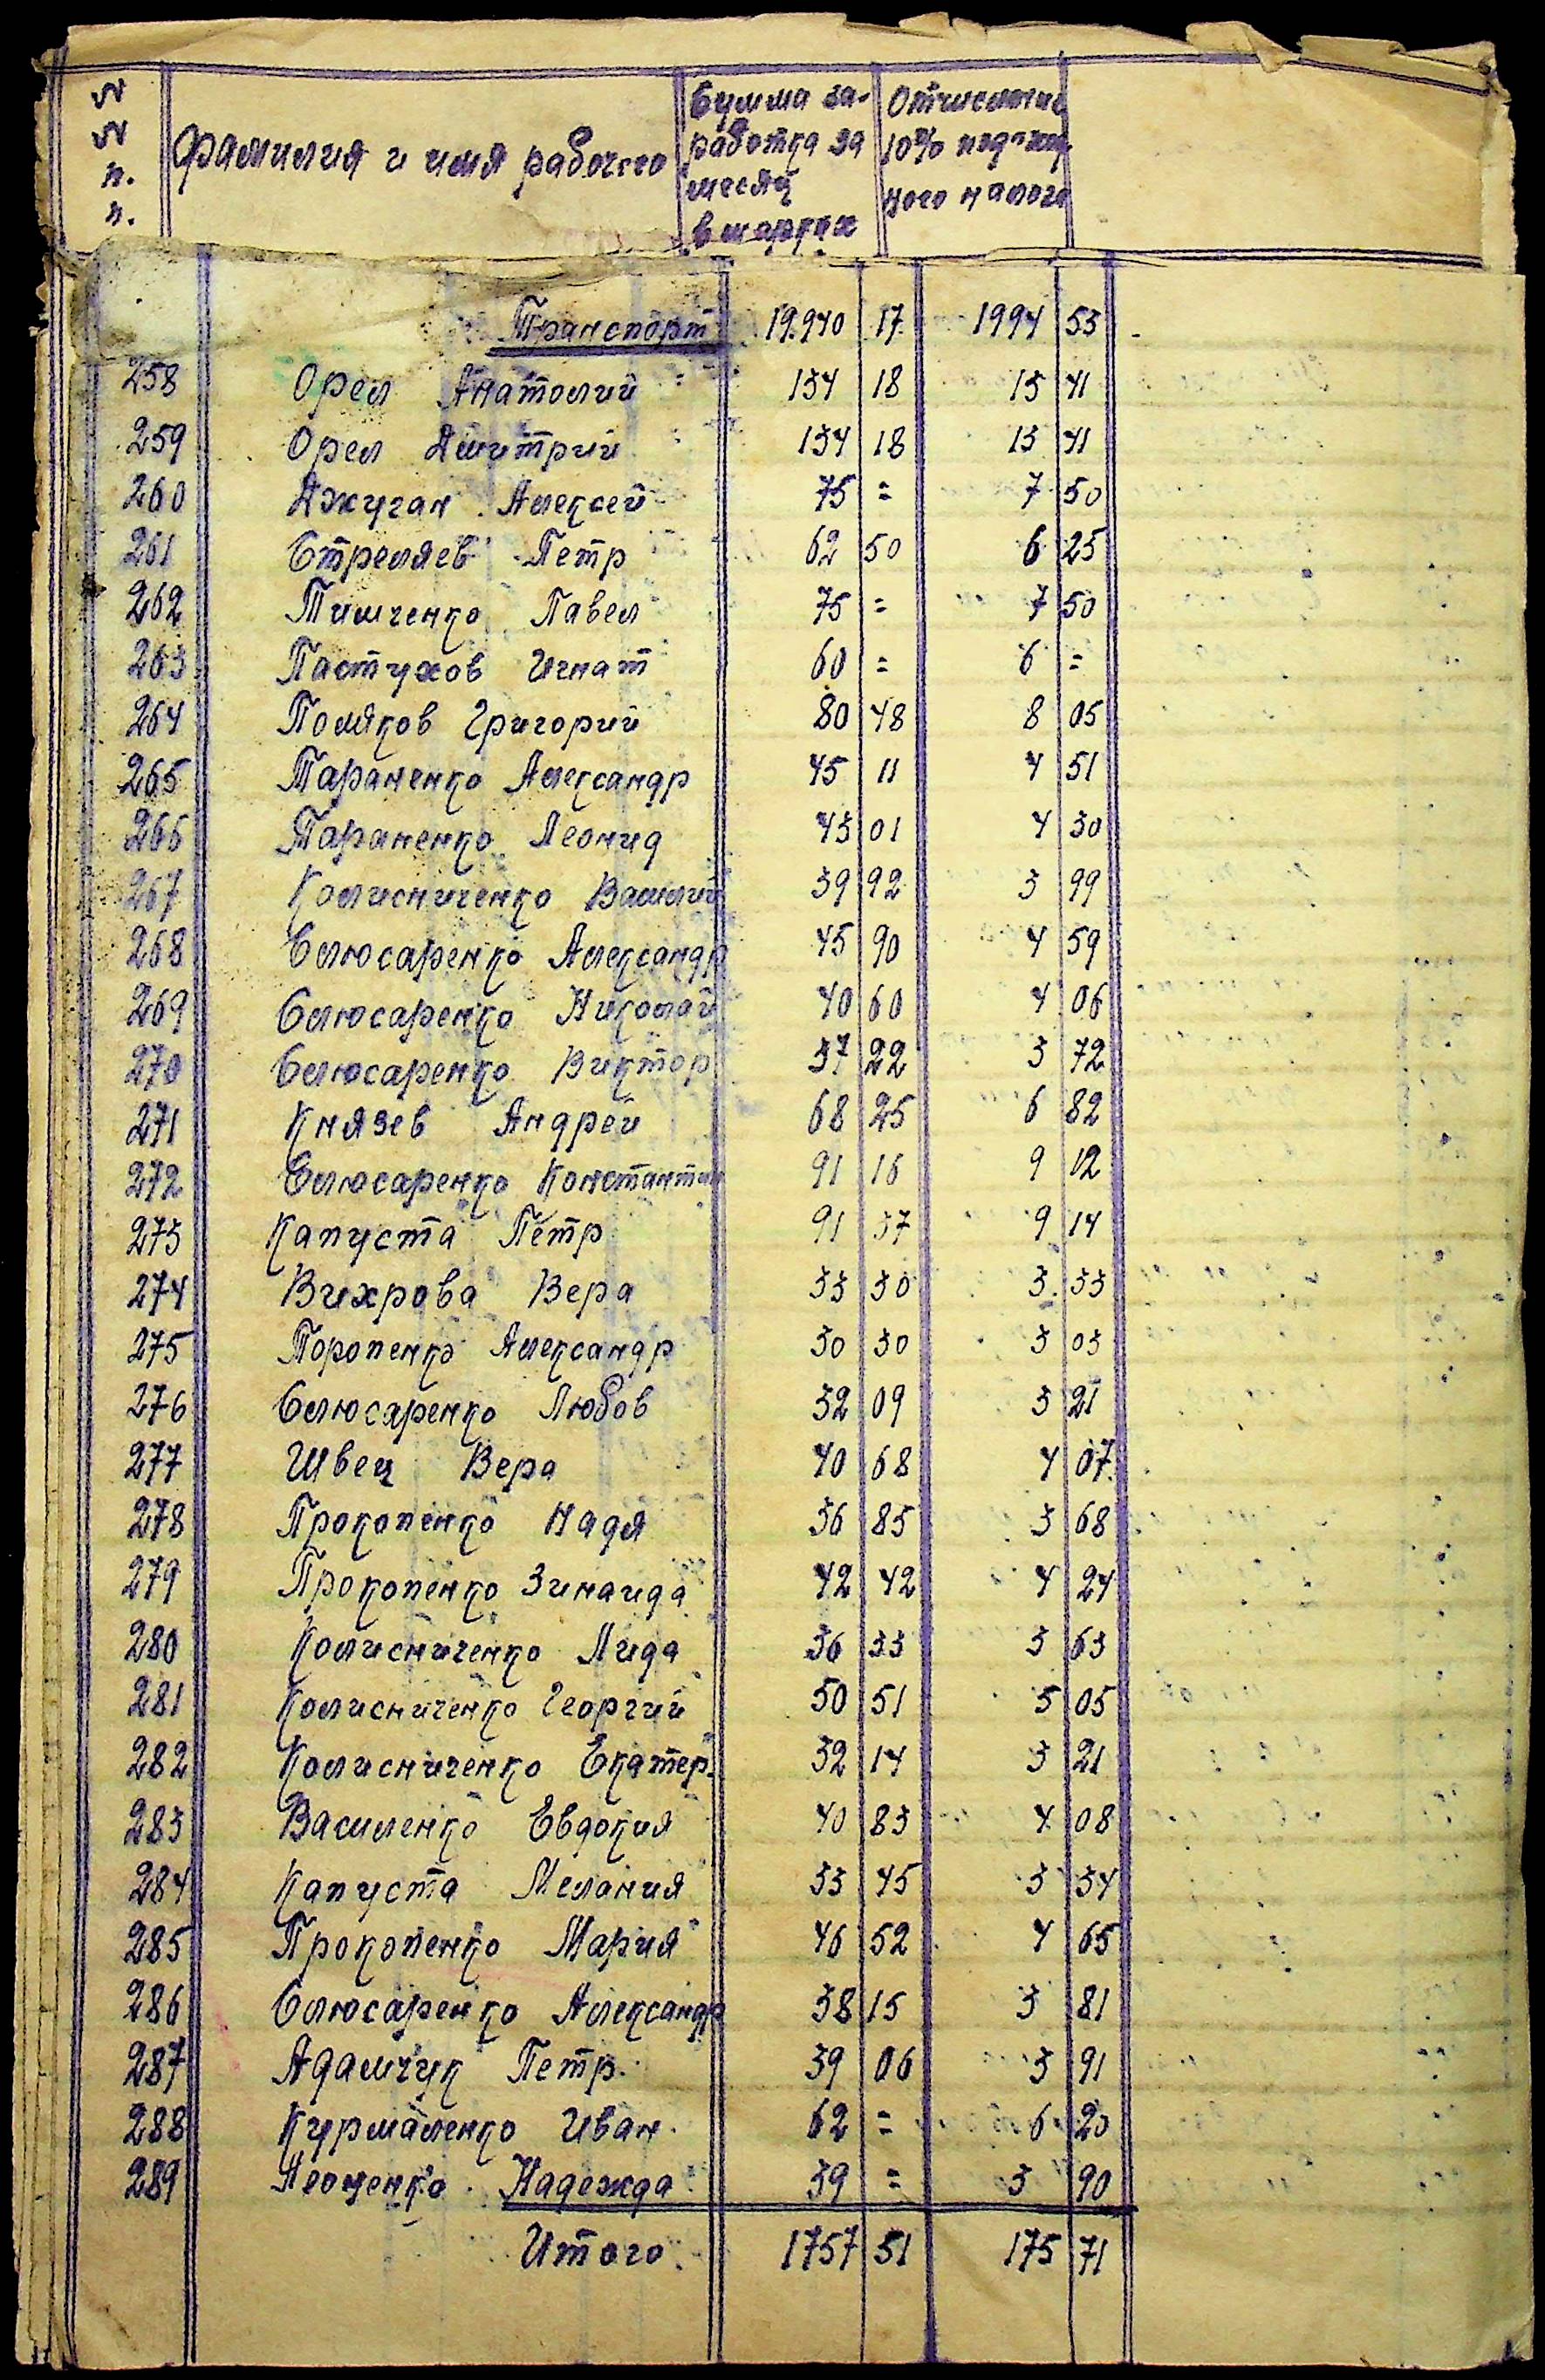 № № п. п. Фамилия и имя рабочего Сумма заработка за месяц в марках Отчисление 10% подоходного налога
Транспорт 19.940 17 1994 53
258 Орел Анатолий 134 18 13 41
259 Орел Дмитрий 134 18 13 41
260 Джуган Алексей 75 = 7 50
261 Стреляев Петр 62 50 6 25
262 Тимченко Павел 75 = 7 50
263 Пастухов Игнат 60 = 6 =
264 Поляков Григорий 80 48 8 05
265 Тараненко Александр 45 11 4 51
266 Тараненко Леонид 43 01 4 30
267 Колисниченко Василий 39 92 3 99
268 Слюсаренко Александр 45 90 4 59
269 Слюсаренко Николай 40 60 4 06
270 Слюсаренко Виктор 37 22 3 72
271 Князев Андрей 68 25 6 82
272 Слюсаренко Константин 91 16 9 12
273 Капуста Петр 91 37 9 14
274 Вихрова Вера 33 30 3 33
275 Поропенко Александр 30 30 3 03
276 Слюсаренко Любов 32 09 3 21
277 Швец Вера 40 68 4 07
278 Прокопенко Надя 36 85 3 68
279 Прокопенко Зинаида 42 42 4 24
280 Колисниченко Лида 36 33 3 63
281 Колисниченко Георгий 50 51 5 05
282 Колисниченко Екатер. 32 14 3 21
283 Василенко Евдокия 40 83 4 08
284 Капуста Мелания 33 45 3 34
285 Прокопенко Мария 46 52 4 65
286 Слюсаренко Александр 38 15 3 81
287 Адамчук Петр. 39 06 3 91
288 Курмаленко Иван. 62 = 6 20
289 Леоценко Надежда 39 = 3 90
Итого 1757 51 175 71